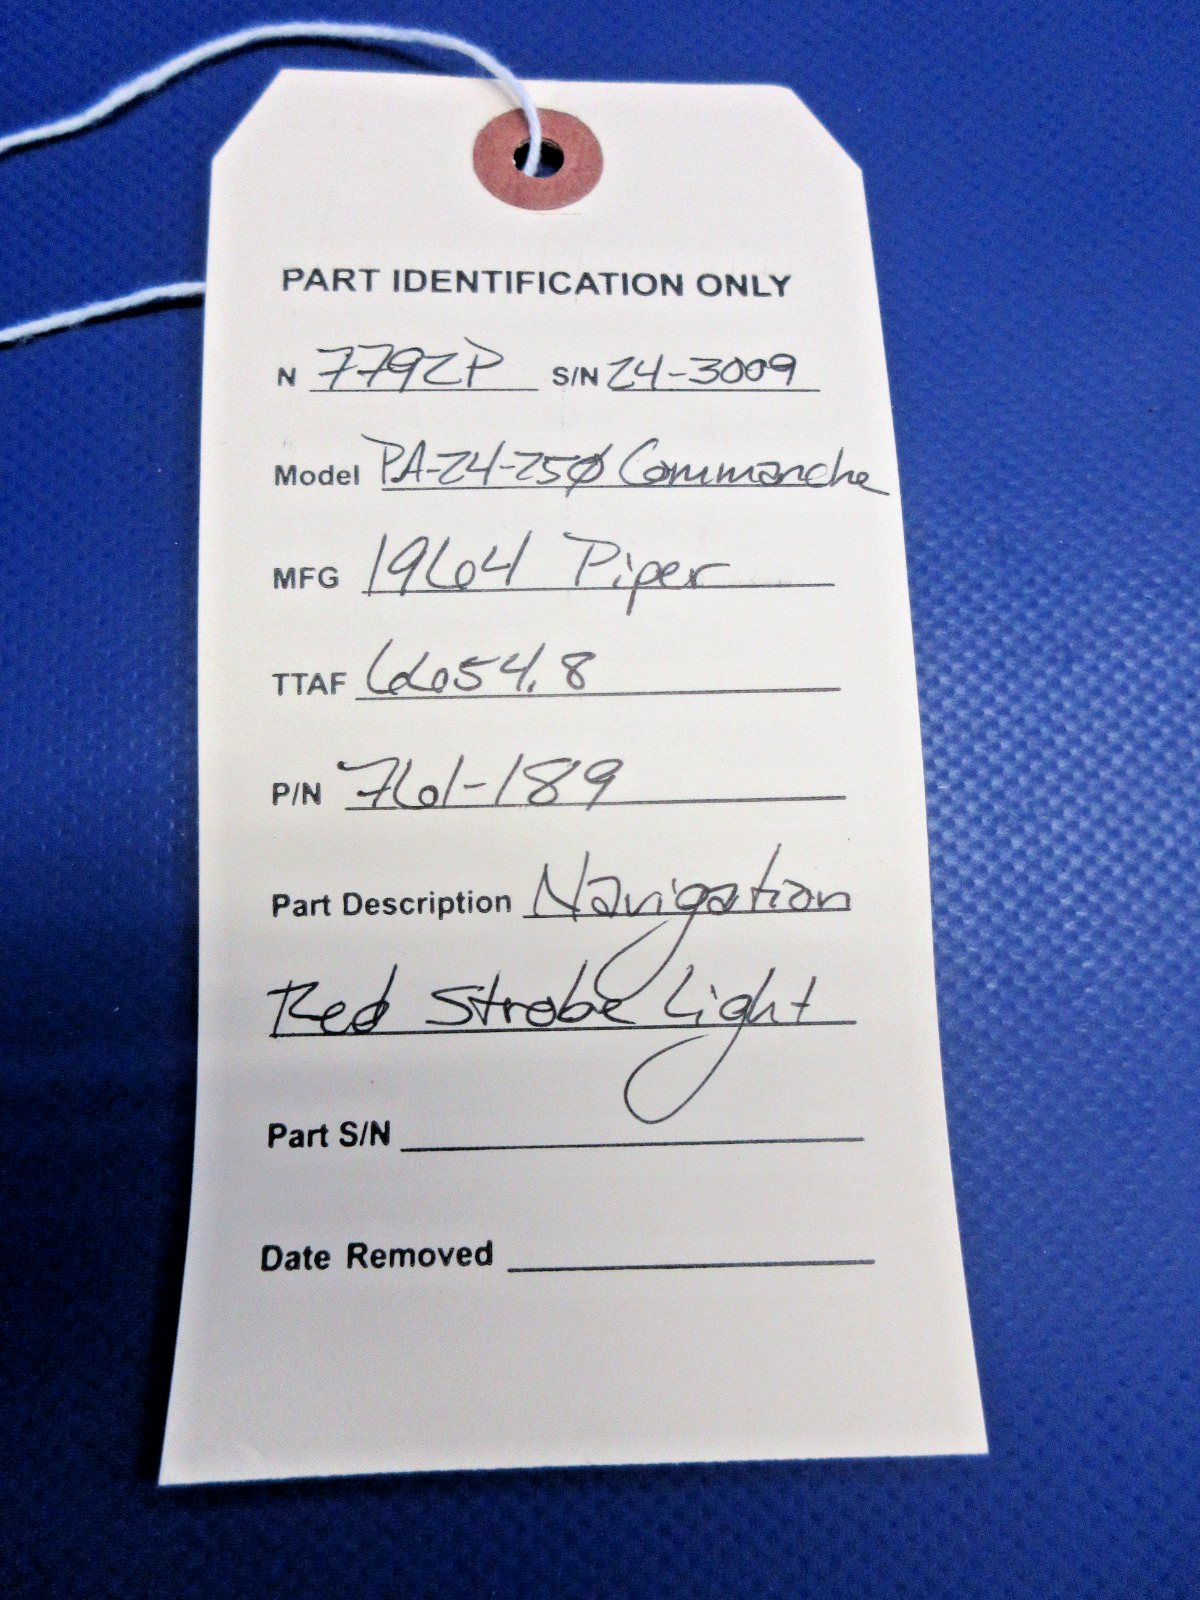 PART IDENTIFICATION ONLY
N 7792P S/N 24-3009
Model PA-24-250 Commanche
MFG 1964 Piper
TTAF 6654.8
P/N 761-189
Part Description Navigation
Red Strobe Light
Part S/N
Date Removed